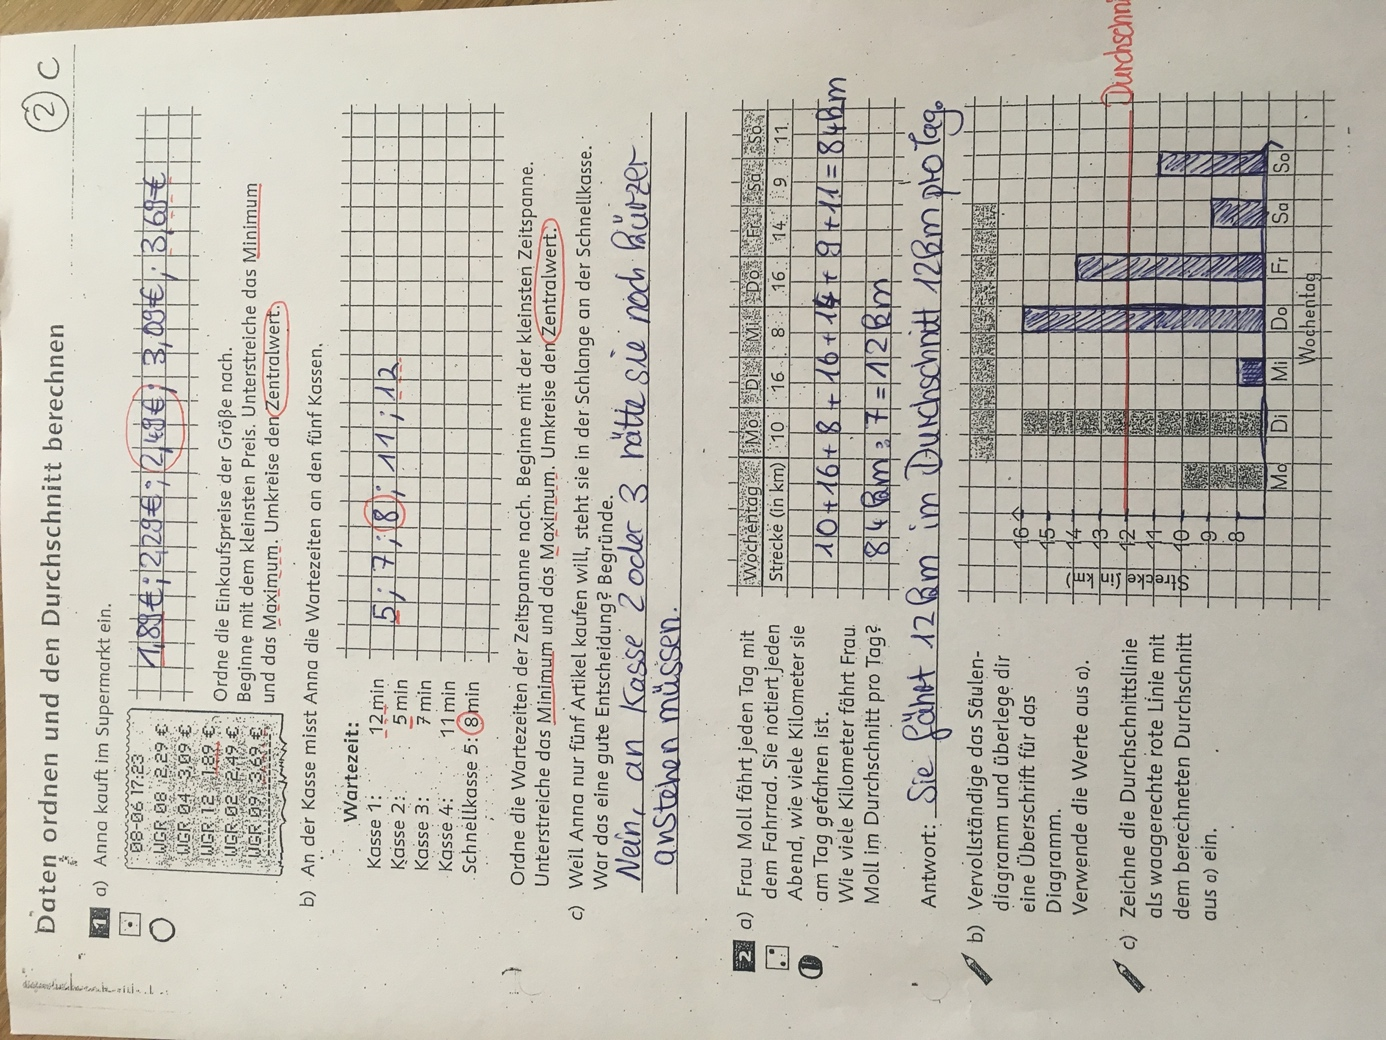 2 C
Daten ordnen und den Durchschnitt berechnen
1 a) Anna kauft im Supermarkt ein.
08-06 17:23
WGR 08 2,29 €
WGR 04 3,09 €
WGR 12 1,89 €
WGR 02 2,49 €
WGR 09 3,69 €
1,89€; 2,29€; 2,49€; 3,09€; 3,69€
Ordne die Einkaufspreise der Größe nach.
Beginne mit dem kleinsten Preis. Unterstreiche das Minimum
und das Maximum. Umkreise den Zentralwert.
b) An der Kasse misst Anna die Wartezeiten an den fünf Kassen.
Wartezeit:
Kasse 1: 12 min
Kasse 2: 5 min
Kasse 3: 7 min
Kasse 4: 11 min
Schnellkasse 5: 8 min
5; 7; 8; 11; 12
Ordne die Wartezeiten der Zeitspanne nach. Beginne mit der kleinsten Zeitspanne.
Unterstreiche das Minimum und das Maximum. Umkreise den Zentralwert.
c) Weil Anna nur fünf Artikel kaufen will, steht sie in der Schlange an der Schnellkasse.
War das eine gute Entscheidung? Begründe.
Nein, an Kasse 2 oder 3 hätte sie noch kürzer
anstehen müssen.
2 a) Frau Moll fährt jeden Tag mit
dem Fahrrad. Sie notiert jeden
Abend, wie viele Kilometer sie
am Tag gefahren ist.
Wie viele Kilometer fährt Frau
Moll im Durchschnitt pro Tag?
Wochentag Mo Di Mi Do Fr Sa So
Strecke (in km) 10 16 8 16 14 9 11
10+16+8+16+14+9+11=84km
84km:7=12km
Antwort: Sie fährt 12km im Durchschnitt 12km pro Tag.
b) Vervollständige das Säulen-
diagramm und überlege dir
eine Überschrift für das
Diagramm.
Verwende die Werte aus a).
c) Zeichne die Durchschnittslinie
als waagerechte rote Linie mit
dem berechneten Durchschnitt
aus a) ein.
Strecke (in km)
16
15
14
13
12
11
10
9
8
Durchschni
Mo Di Mi Do Fr Sa So
Wochentag